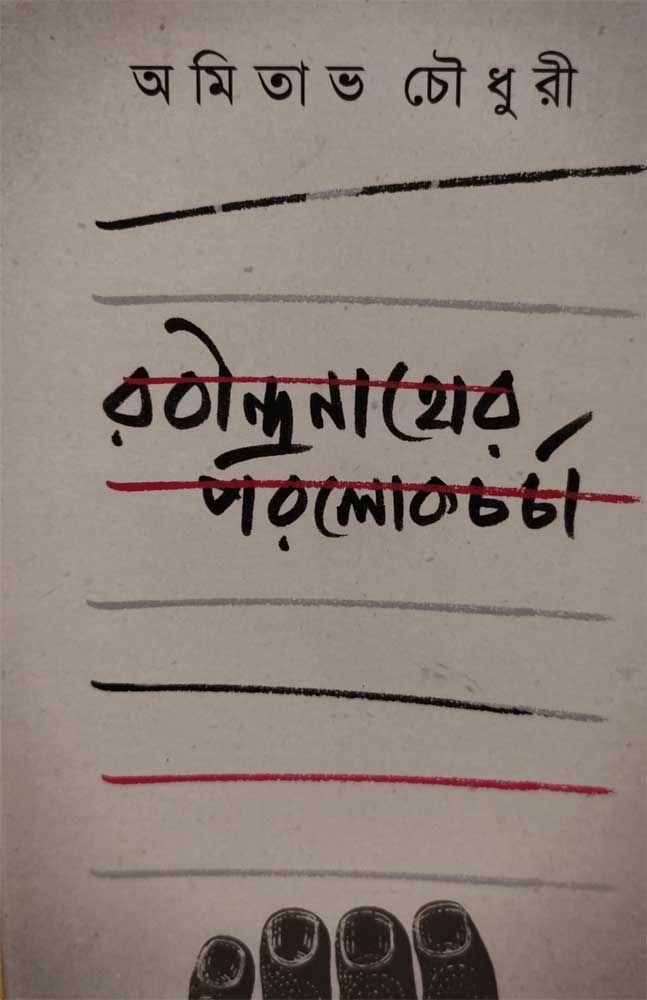 অমিতাভ চৌধুরী
রবীন্দ্রনাথের
পরলোকচর্চা